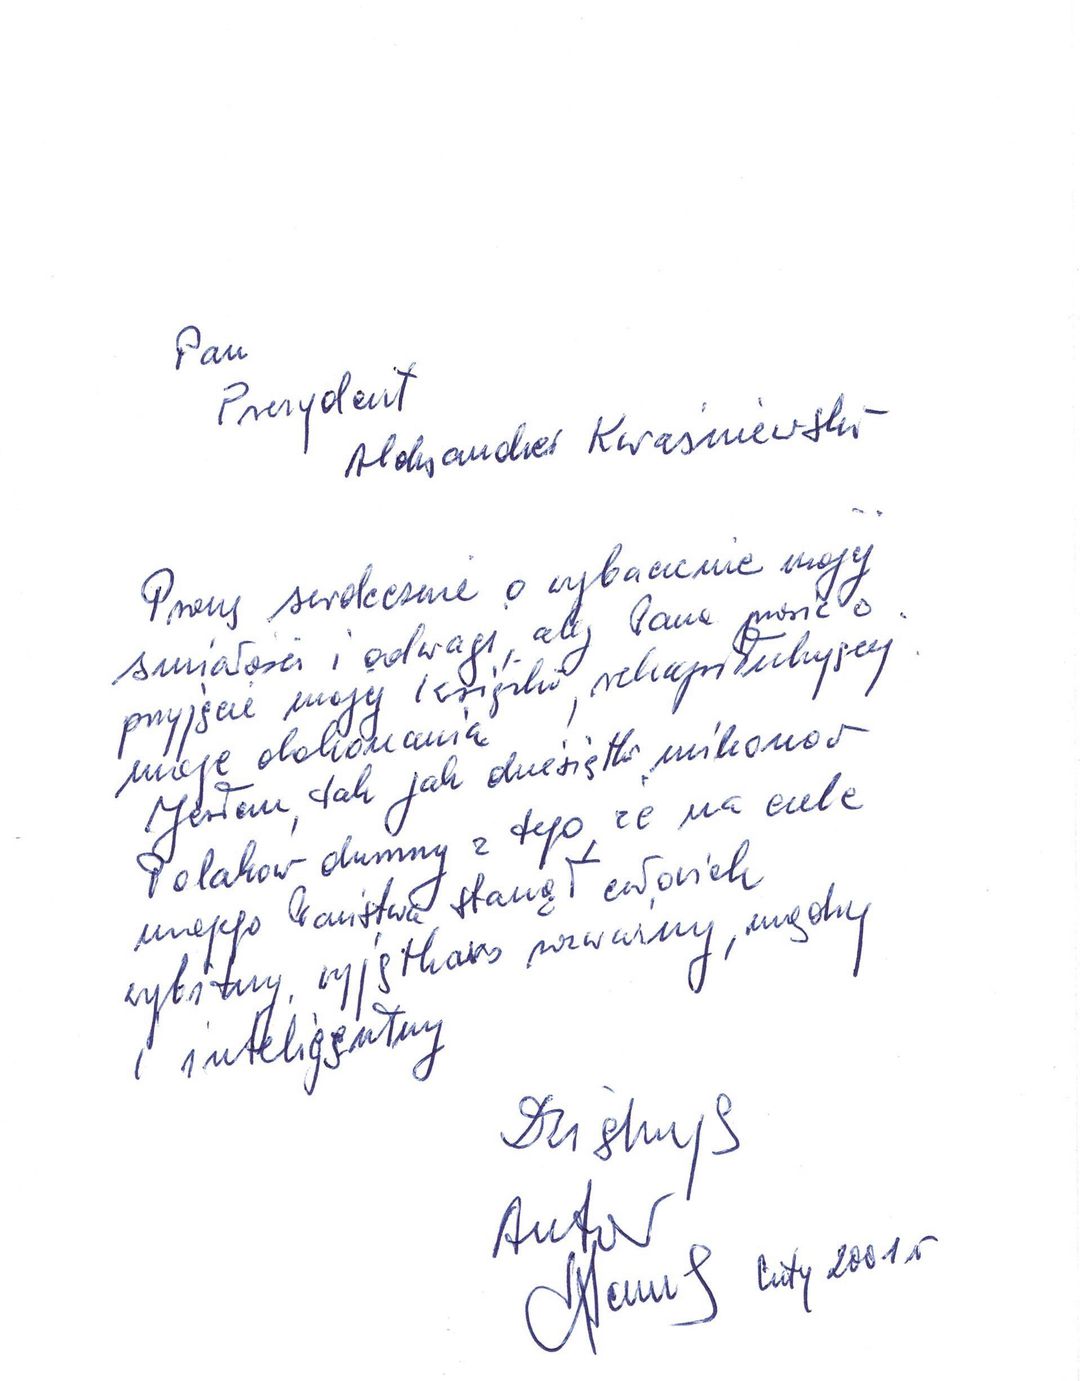 Pan
Prezydent
Aleksander Kwaśniewski
Proszę serdecznie o wybaczenie mojej
śmiałości i odwagi, aby Pana prosić o
przyjęcie mojej książki, rekapitulującej
moje dokonania.
Jestem, tak jak dziesiątki milionów
Polaków dumny z tego, że na czele
mojego Państwa stanął człowiek
wybitny, wyjątkowo rozważny, mądry
i inteligentny
Dziękuję
Autor
luty 2001 r